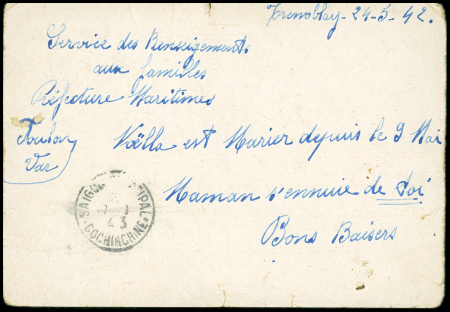 Tremblay-24-5-42.
Service des Renseignements
aux familles
Préfecture Maritimes
Toulon
Var
Noëlla est Marier depuis le 9 Mai
Maman s'ennuie de toi
Bons Baisers
SAIGON PRINCIPAL
43
COCHINCHINE